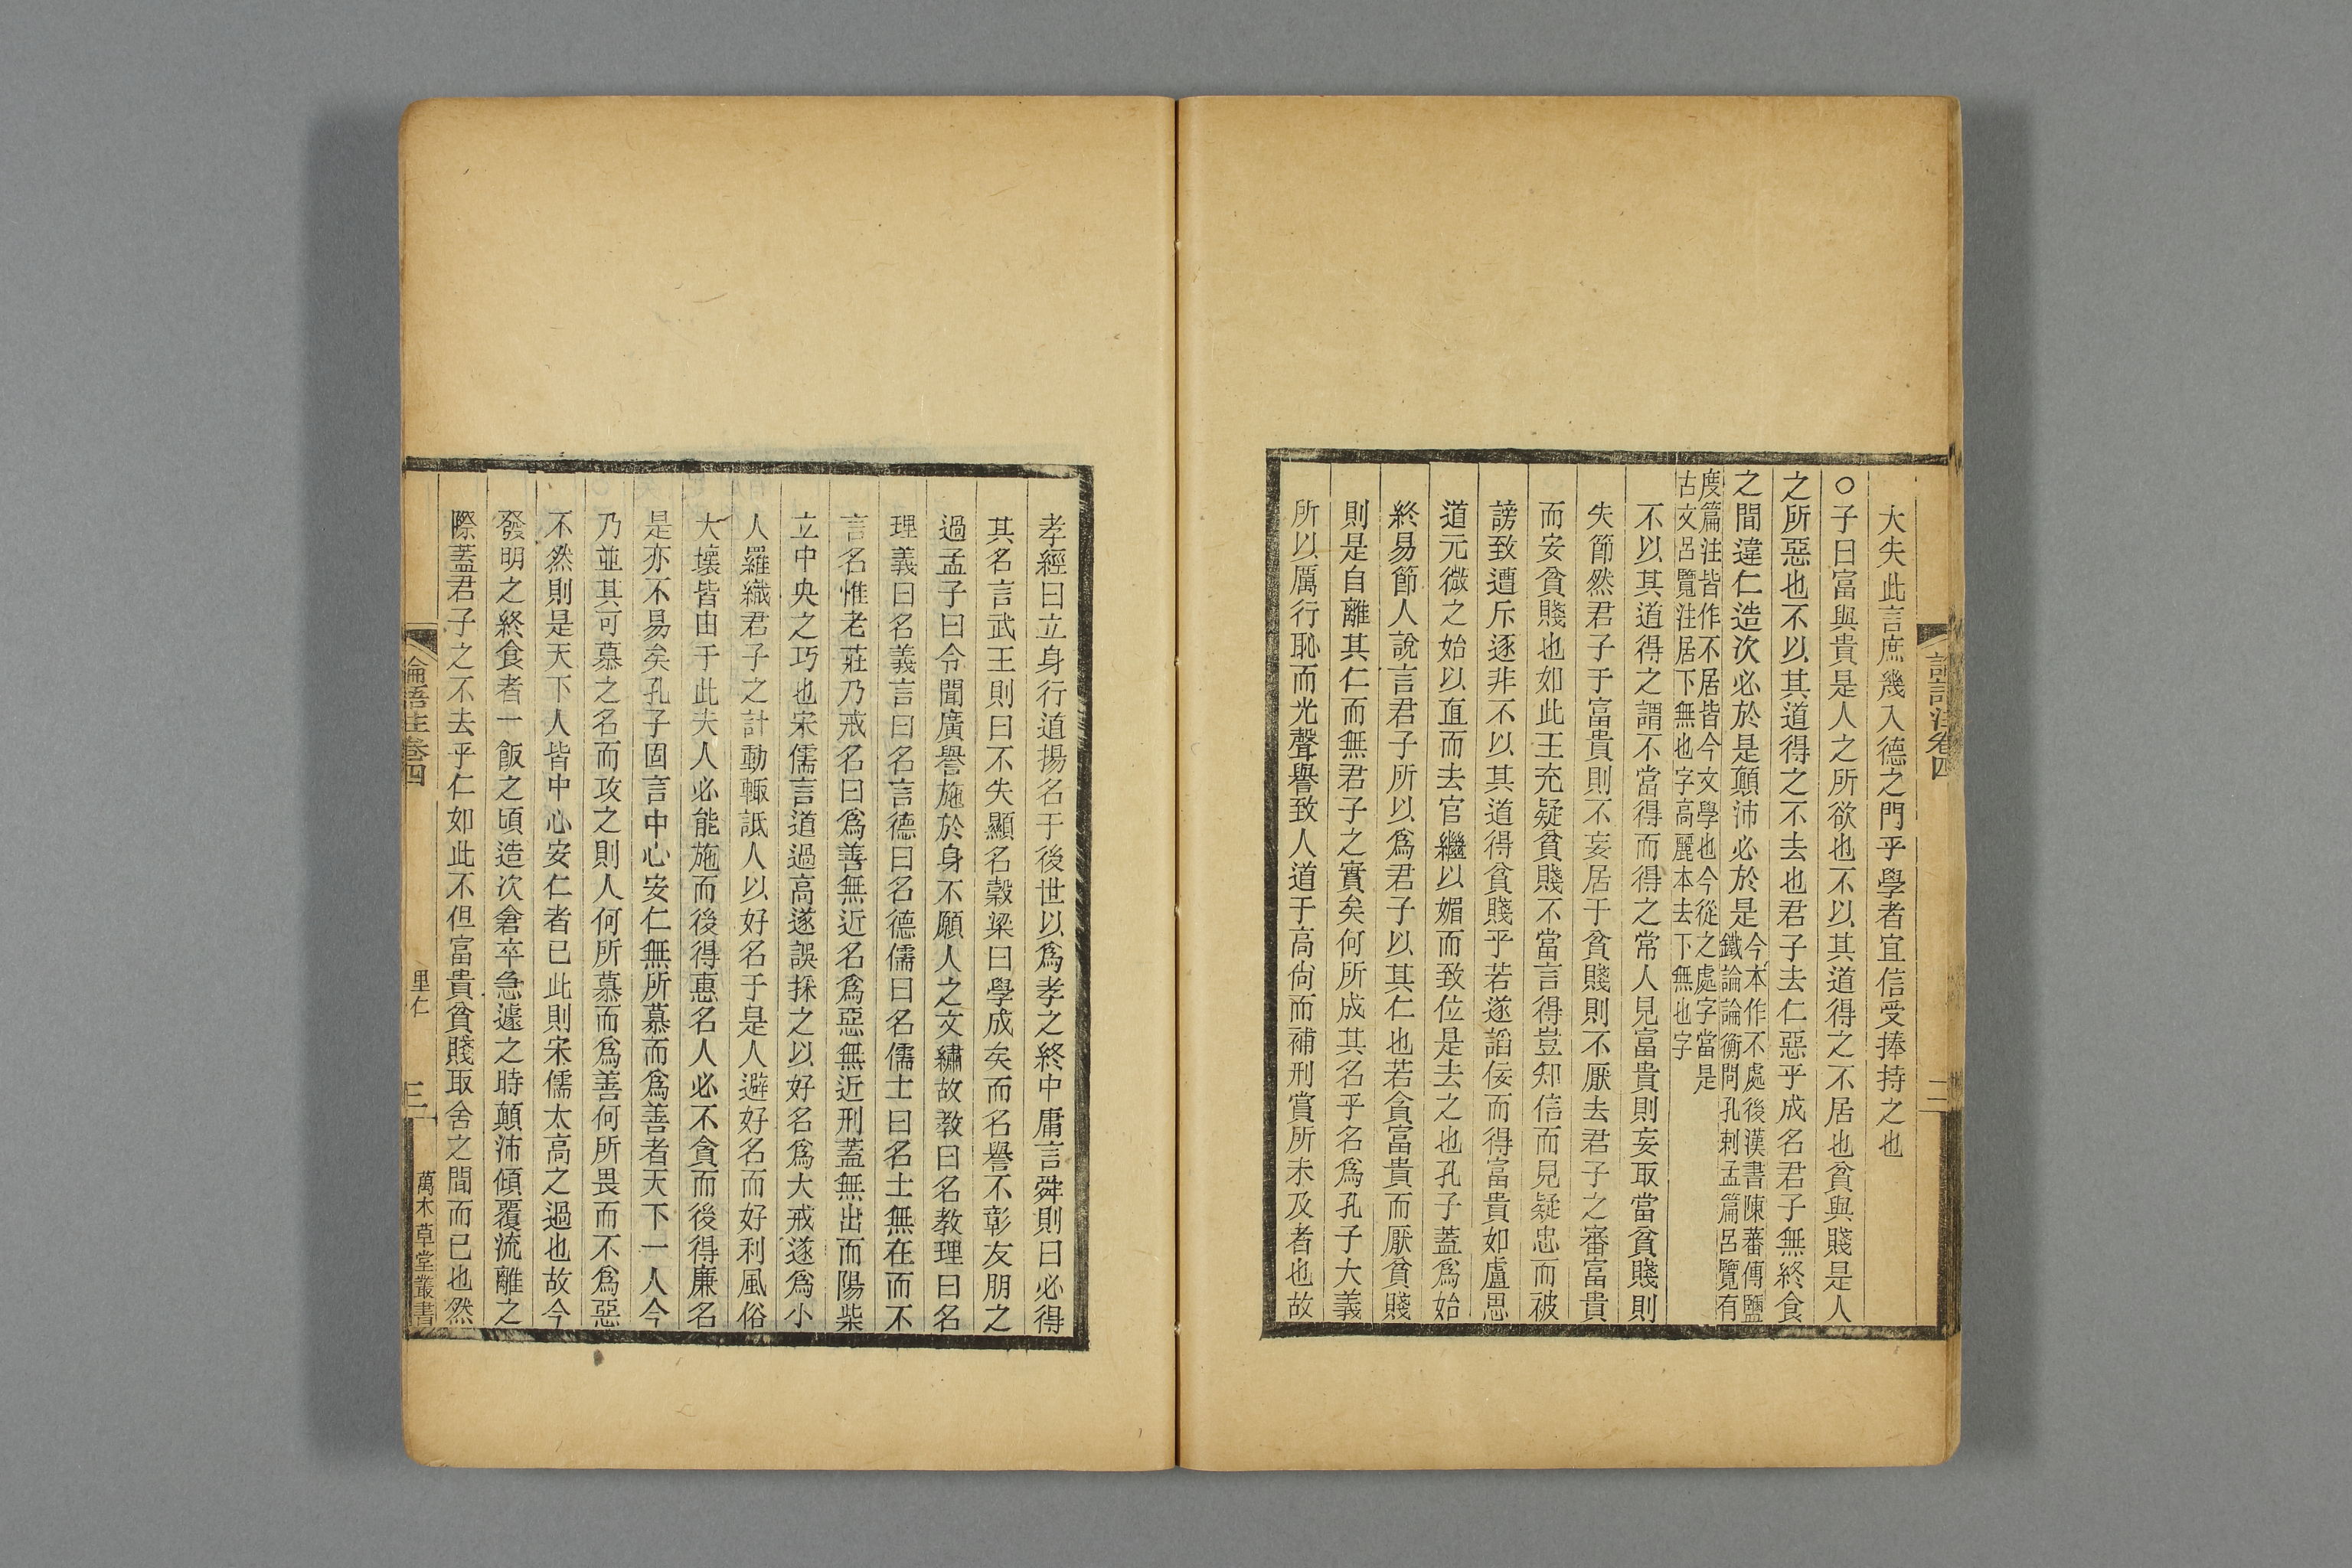 大失此言庶幾入德之門乎學者宜信受捧持之也
○子曰富與貴是人之所欲也不以其道得之不居也貧與賤是人
之所惡也不以其道得之不去也君子去仁惡乎成名君子無終食
之間違仁造次必於是顛沛必於是
今本作不處後漢書陳蕃傳鹽
鐵論論衡問孔刺孟篇呂覽有
度篇注皆作不居皆今文學也今從之處字當是
古文呂覽注居下無也字高麗本去下無也字
不以其道得之謂不當得而得之常人見富貴則妄取當貧賤則
失節然君子于富貴則不妄居于貧賤則不厭去君子之審富貴
而安貧賤也如此王充疑貧賤不當言得豈知信而見疑忠而被
謗致遭斥逐非不以其道得貧賤乎若遂謟佞而得富貴如盧思
道元微之始以直而去官繼以媚而致位是去之也孔子蓋爲始
終易節人說言君子所以爲君子以其仁也若貪富貴而厭貧賤
則是自離其仁而無君子之實矣何所成其名乎名爲孔子大義
所以厲行恥而光聲譽致人道于高尙而補刑賞所未及者也故
孝經曰立身行道揚名于後世以爲孝之終中庸言舜則曰必得
其名言武王則曰不失顯名穀梁曰學成矣而名譽不彰友朋之
過孟子曰令聞廣譽施於身不願人之文繡故教曰名教理曰名
理義曰名義言曰名言德曰名德儒曰名儒士曰名士無在而不
言名惟老莊乃戒名曰爲善無近名爲惡無近刑蓋無出而陽柴
立中央之巧也宋儒言道過高遂誤採之以好名爲大戒遂爲小
人羅織君子之計動輒詆人以好名于是人避好名而好利風俗
大壞皆由于此夫人必能施而後得惠名人必不貪而後得廉名
是亦不易矣孔子固言中心安仁無所慕而爲善者天下一人今
乃並其可慕之名而攻之則人何所慕而爲善何所畏而不爲惡
不然則是天下人皆中心安仁者已此則宋儒太高之過也故今
發明之終食者一飯之頃造次倉卒急遽之時顛沛傾覆流離之
際蓋君子之不去乎仁如此不但富貴貧賤取舍之間而已也然
論語注卷四
里仁
三
萬木草堂叢書